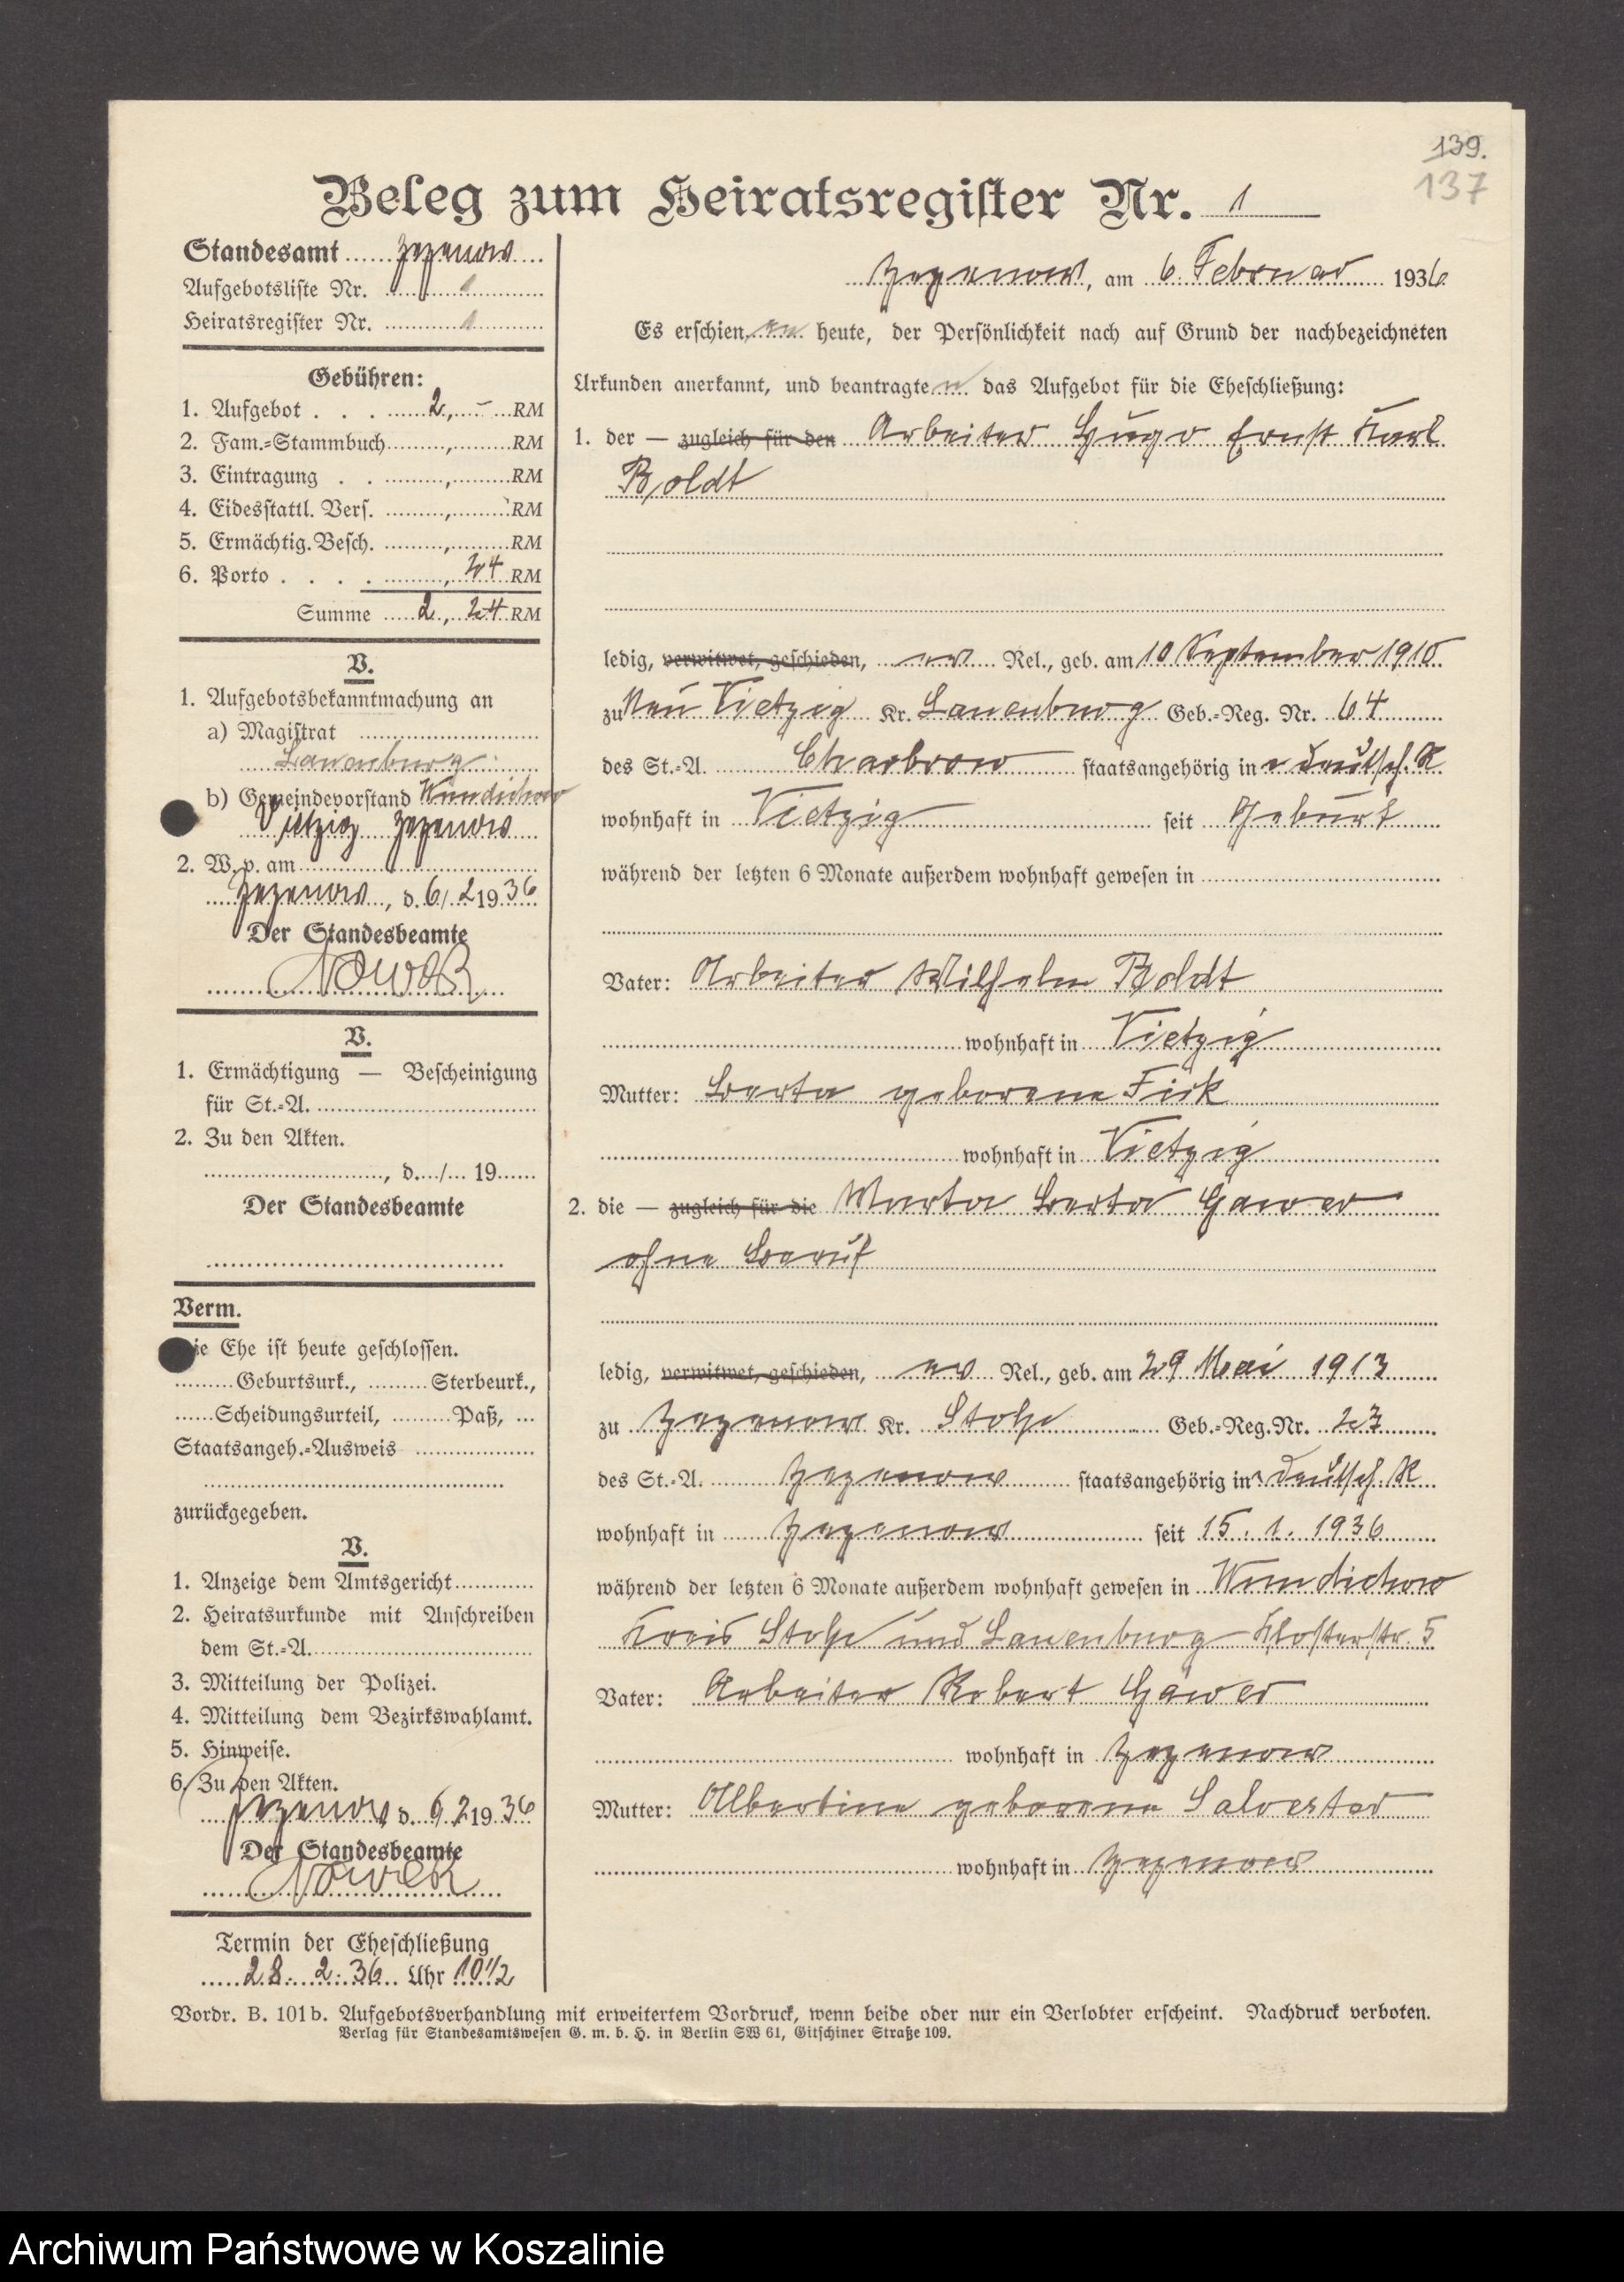 139.
137
Beleg zum Heiratsregister Nr. 1
Standesamt Zezenow
Aufgebotsliste Nr. 1
Heiratsregister Nr. 1
Gebühren:
1. Aufgebot . . . 2,- RM
2. Fam.-Stammbuch , RM
3. Eintragung . . , RM
4. Eidesstattl. Vers. , RM
5. Ermächtig. Besch. , RM
6. Porto . . . . , 24 RM
Summe 2, 24 RM
V.
1. Aufgebotsbekanntmachung an
a) Magistrat
Lauenburg
b) Gemeindevorstand Wundichow
Vietzig Zezenow
2. W. v. am
Zezenow, d. 6/ 2 1936
Der Standesbeamte
V.
1. Ermächtigung — Bescheinigung
für St.-A.
2. Zu den Akten.
, d. / 19
Der Standesbeamte
Verm.
ie Ehe ist heute geschlossen.
Geburtsurk., Sterbeurk.,
Scheidungsurteil, Paß,
Staatsangeh.-Ausweis
zurückgegeben.
V.
1. Anzeige dem Amtsgericht
2. Heiratsurkunde mit Anschreiben
dem St.-A.
3. Mitteilung der Polizei.
4. Mitteilung dem Bezirkswahlamt.
5. Hinweise.
6. Zu den Akten.
Zezenow d. 6. 2 1936
Der Standesbeamte
Termin der Eheschließung
28. 2. 36 Uhr 10 1/2
Zezenow, am 6. Februar 1936
Es erschienen heute, der Persönlichkeit nach auf Grund der nachbezeichneten
Urkunden anerkannt, und beantragten das Aufgebot für die Eheschließung:
1. der — zugleich für den Arbeiter Hugo Ernst Karl
Boldt
ledig, verwitwet, geschieden, ev. Rel., geb. am 10 September 1910
zu Neu Vietzig Kr. Lauenburg Geb.-Reg. Nr. 64
des St.-A. Charbrow staatsangehörig in deutsch. R
wohnhaft in Vietzig seit Geburt
während der letzten 6 Monate außerdem wohnhaft gewesen in
Vater: Arbeiter Wilhelm Boldt
wohnhaft in Vietzig
Mutter: Berta geborene Fick
wohnhaft in Vietzig
2. die — zugleich für die Marta Berta Gawer
ohne Beruf
ledig, verwitwet, geschieden, ev Rel., geb. am 29 Mai 1913
zu Zezenow Kr. Stolp Geb.-Reg. Nr. 23
des St.-A. Zezenow staatsangehörig in deutsch. R
wohnhaft in Zezenow seit 15. 1. 1936
während der letzten 6 Monate außerdem wohnhaft gewesen in Wundichow
Kreis Stolp und Lauenburg Klosterstr. 5
Vater: Arbeiter Robert Gawer
wohnhaft in Zezenow
Mutter: Albertine geborene Salvester
wohnhaft in Zezenow
Vordr. B. 101b. Aufgebotsverhandlung mit erweitertem Vordruck, wenn beide oder nur ein Verlobter erscheint. Nachdruck verboten.
Verlag für Standesamtswesen G. m. b. H. in Berlin SW 61, Gitschiner Straße 109.
Archiwum Państwowe w Koszalinie